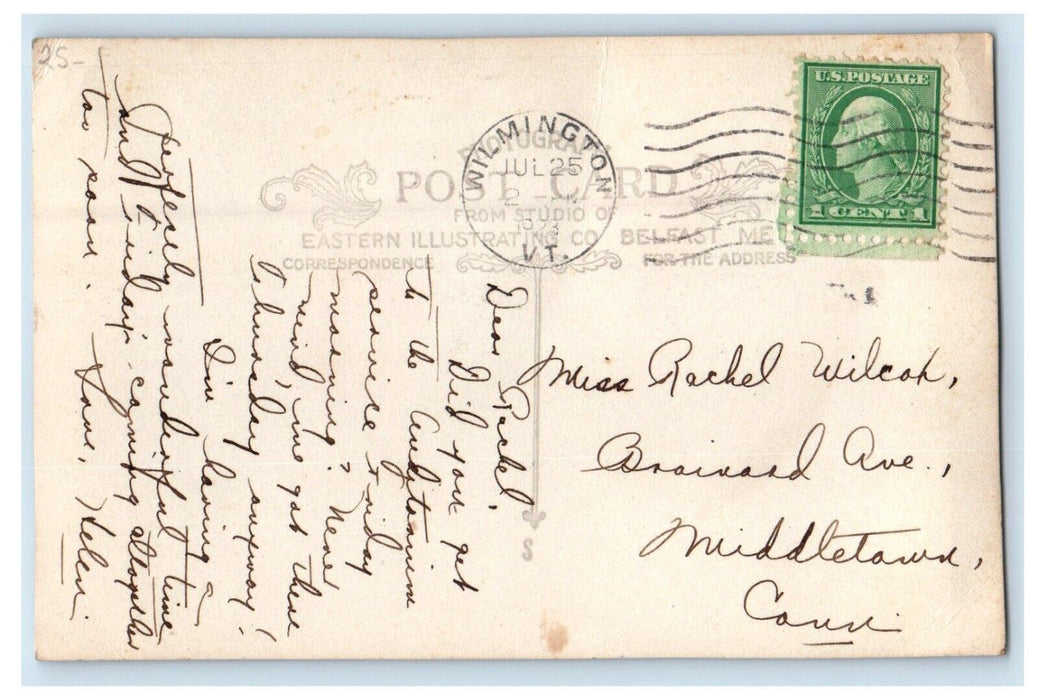 25-
U.S. POSTAGE
1 CENT 1
WILMINGTON
JUL 25
VT.
PHOTOGRAPH
POST CARD
FROM STUDIO OF
EASTERN ILLUSTRATING CO BELFAST ME
CORRESPONDENCE
FOR THE ADDRESS
S
Dear Rachel,
Did you get
to the Auditorium
service Friday
morning? Never
mind, me got there
Thursday anyway!
I'm having a
perfectly wonderful time
and Friday's coming altogether
too soon.
Love,
Helen.
Miss Rachel Wilcox,
Brainard Ave.,
Middletown,
Conn.